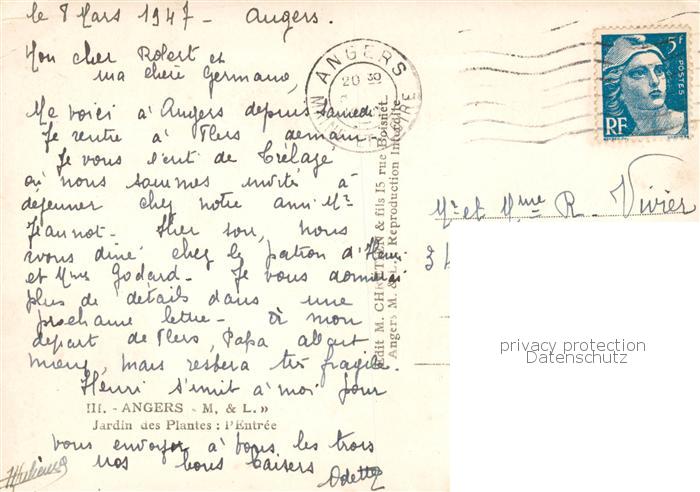 le 8 Mars 1947 - Angers.
Mon cher Robert et
ma chère Germaine,
Me voici à Angers depuis samedi
Je rentre à Flers demain
Je vous écris de Trélazé
où nous sommes invité à
déjeuner chez notre ami Mr
Jeannot - Hier soir, nous
avons diné chez le patron d'Henri
et Mme Godard - Je vous donnerai
plus de détails dans une
prochaine lettre - À mon
départ de Flers, Papa allait
mieux, mais restera très fragile.
Henri s'unit à moi pour
III. - ANGERS - M. & L. »
Jardin des Plantes : l'Entrée
vous envoyer à tous les trois
nos bons baisers
Odette
Edit M. CHRÉTIEN & fils 15 rue Boisnet
Angers M. & L. Reproduction Interdite
ANGERS
20 30
5f
POSTES
RF
Mr et Mme R. Vivier
privacy protection
Datenschutz